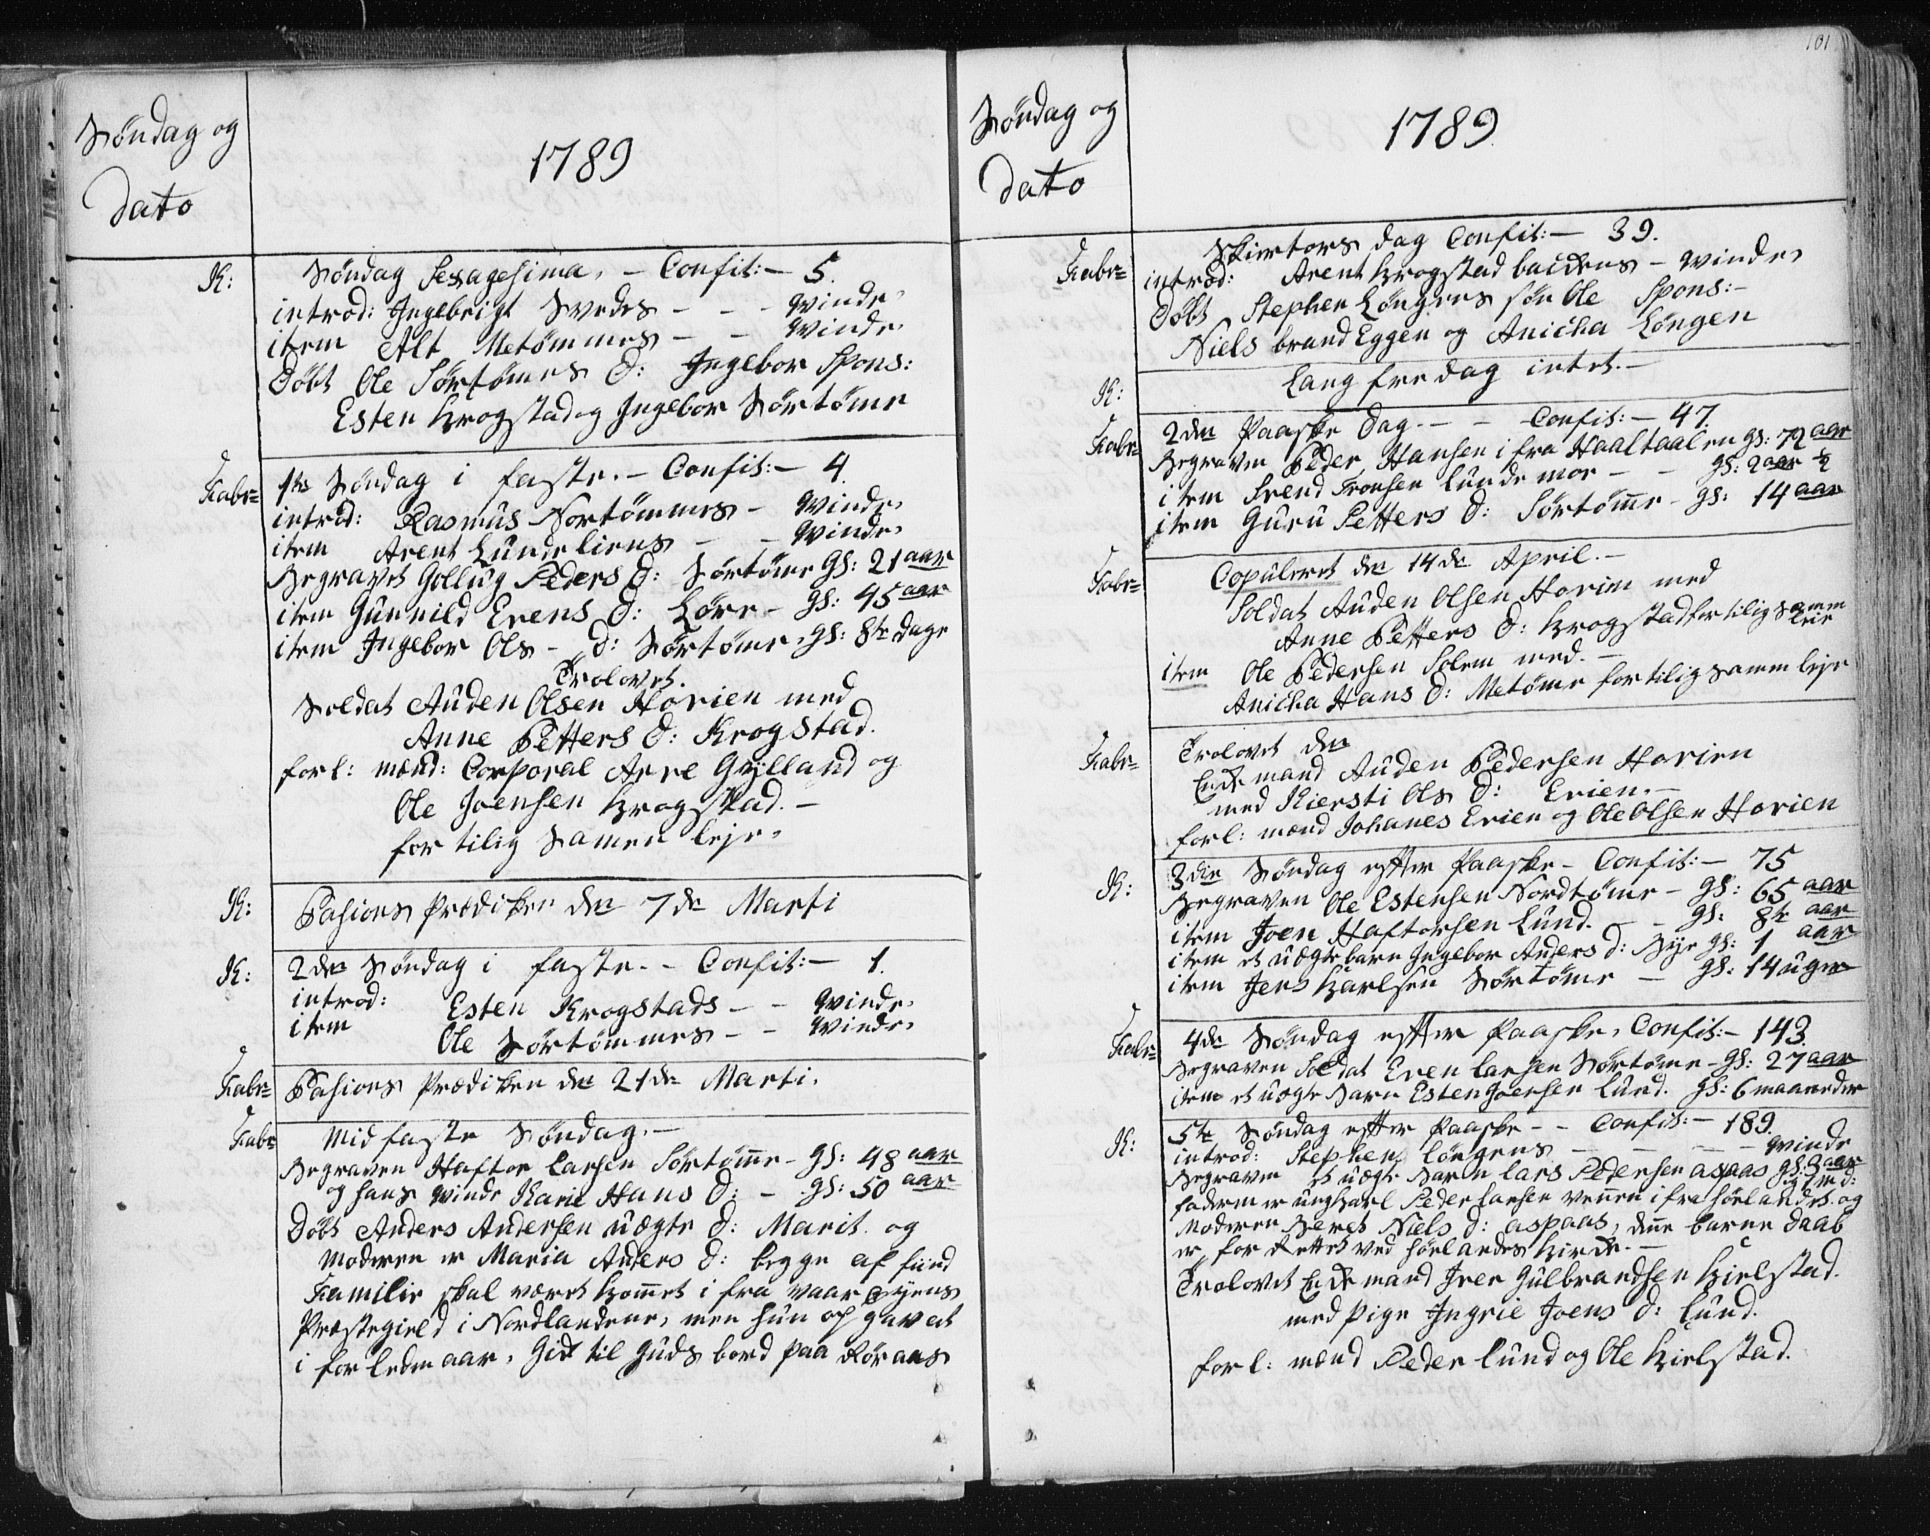 Søndag og
dato
1789
K: Søndag Sexagesima, - Confit: - 5.
introd: Ingebrigt Svedes - - - Qvinde,
item Alt Metømmes - - Qvinde
Døbt Ole Sørtømes d: Ingebor Spons:
Esten Krogstad og Ingebor Sørtøme
Fabr= 1te Søndag i faste. - Confit: - 4.
introd: Rasmus Nortømmes - Qvinde,
item Arent Lundeliens - - Qvinde,
Begravet Gollug Peders d: Sørtøme gl: 21 aar
item Gunnild Evens d: Løre - gl: 45 aar
item Ingebor Ols - d: Sørtøme, gl: 8te dage
Trolovet.
Soldat Auden Olsen Horien med
Anne Petters d: Krogstad.
forl: mænd: Corporal Arre Grylland og
Ole Joensen Krogstad. -
for tilig samen leje,
K: Pasions Prædiken den 7de Marti
K: 2den Søndag i faste. - Confit: - 1.
introd: Esten Krogstads - - Qvinde,
item Ole Sørtømmes - - Qvinde,
Fabr= Pasions Prædiken den 21de Marti,
Fabr= Mid faste Søndag. -
Begraven Haftor Larsen Sørtømme - gl: 48 aar
og hans Qvinde Karie Hans d: - gl: 50 aar
Døbt Anders Andersen uægte d: Marit. og
Moderen er Maria Anders d: begge af
Familie skal været kommet i fra Vaar
Præstegield i Nordlandene, men hun op gav at
i forleden aar, Gik til Guds bord paa Røraas
101
Søndag og
dato
1789
Fabr= Skiertors dag Confit: - 39.
introd: Arent Krogstad bakens - Qvinde,
Døbt Stephen Løngens søn Ole Spons: -
Niels brand Eggen og Anicha Løngen
K: Lang fredag intet. -
Fabr= 2den Paaske dag. - - Confit: - 47.
Begraven Peder Hansen i fra Haaltaalen gl: 72 aar
item Svend Tronsen Lundemor - - gl: 2 aar ½
item Guru Petters d: Sørtømme - gl: 14 aar
Fabr= Copuleret den 14de April. -
Soldat Auden Olsen Horien med
Anne Petters d: Krogstad for tilig samm
leje
item Ole Pedersen Solem med. -
Anicha Hans d: Metøme for tilig samm leje
Fabr= Trolovet den
Enke mand Auden Pedersen Horien
med Kiersti Ols d: Evien. -
forl: mænd Johanes Evien og Ole Olsen Horien
K: 3die Søndag effter Paaske - Confit: - 75
Begraven Ole Estensen Nordtøme - gl: 65 aar
item Joen Haftorsen Lund. - - gl: 8te aar
item et uægte barn Ingebor Anders d: Bye gl: 1 aar
item Jens Karlsen Sørtøme - gl: 14 uger
Fabr= 4de Søndag effter Paaske, Confit: - 143.
Begraven Soldat Even Larsen Sørtøme - gl: 27 aar
item et uægte Barn Esten Joensen Lund. gl: 6 maaneder
K: 5te Søndag effter Paaske - - Confit: - 189.
introd: Stephen Løngens - - - - Qvinde
Begraven et uægte Barn Lars Pedersen aspaas gl: 3 aar
faderen er ungkarl Peder Larsen i fra Hørlandet. og
Moderen Beret Niels d: aspaas, denne barne daab
er, for Rettet ved Hørlandes Kirke. -
Trolovet Enke mand Iver Gulbrandsen Kielstad.
med pige Ingrie Joens d: Lund.
forl: mænd Peder Lund og Ole Kielstad.